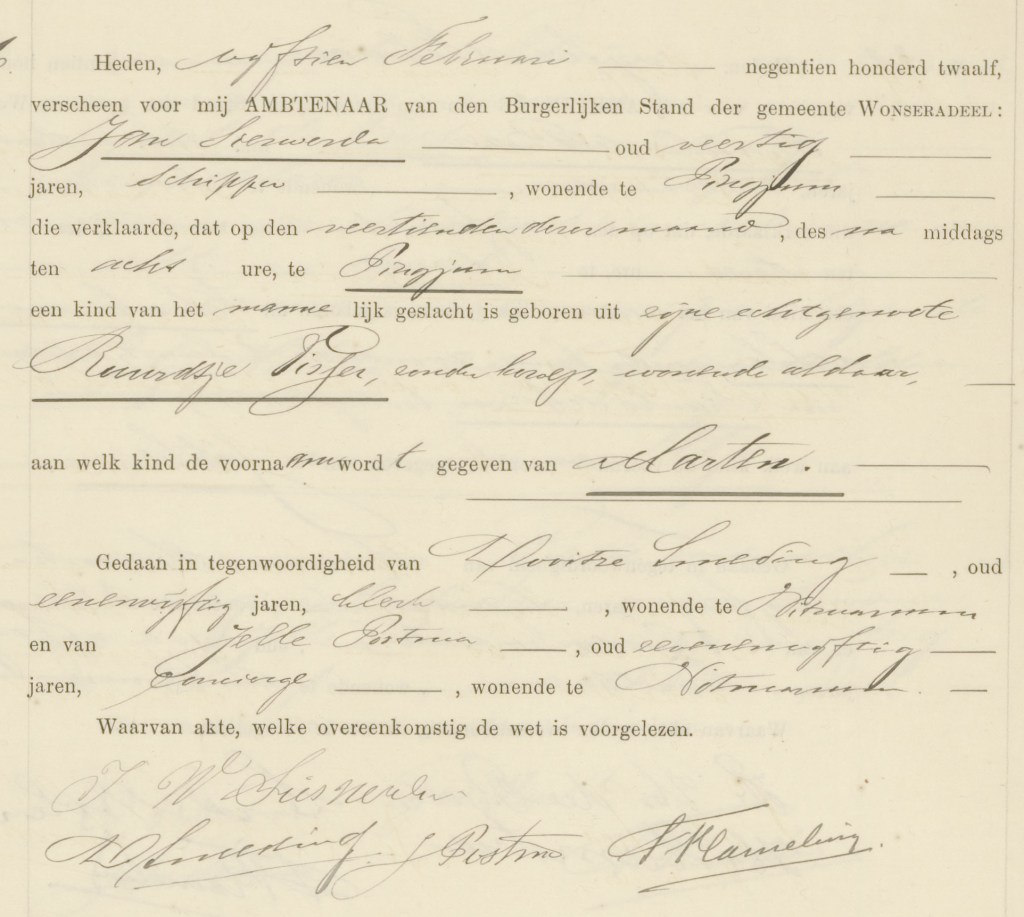 Heden, vyftien Februari negentien honderd twaalf,
verscheen voor mij AMBTENAAR van den Burgerlijken Stand der gemeente WONSERADEEL:
Jan oud veertig
jaren, Schipper, wonende te Pingjum
die verklaarde, dat op den veertienden dezer maand, des na middags
ten acht ure, te Pingjum
een kind van het manne lijk geslacht is geboren uit zijne echtgenoote
Ruurdtje Visser, zonder beroep, wonende aldaar,
aan welk kind de voornaam word t gegeven van Marten.
Gedaan in tegenwoordigheid van Douitze Smeding, oud
eenenvyftig jaren, klerk, wonende te Witmarsum
en van Jelle Postma, oud zevenenvyftig
jaren, Concierge, wonende te Witmarsum.
Waarvan akte, welke overeenkomstig de wet is voorgelezen.
J W
D Smeding J Postma